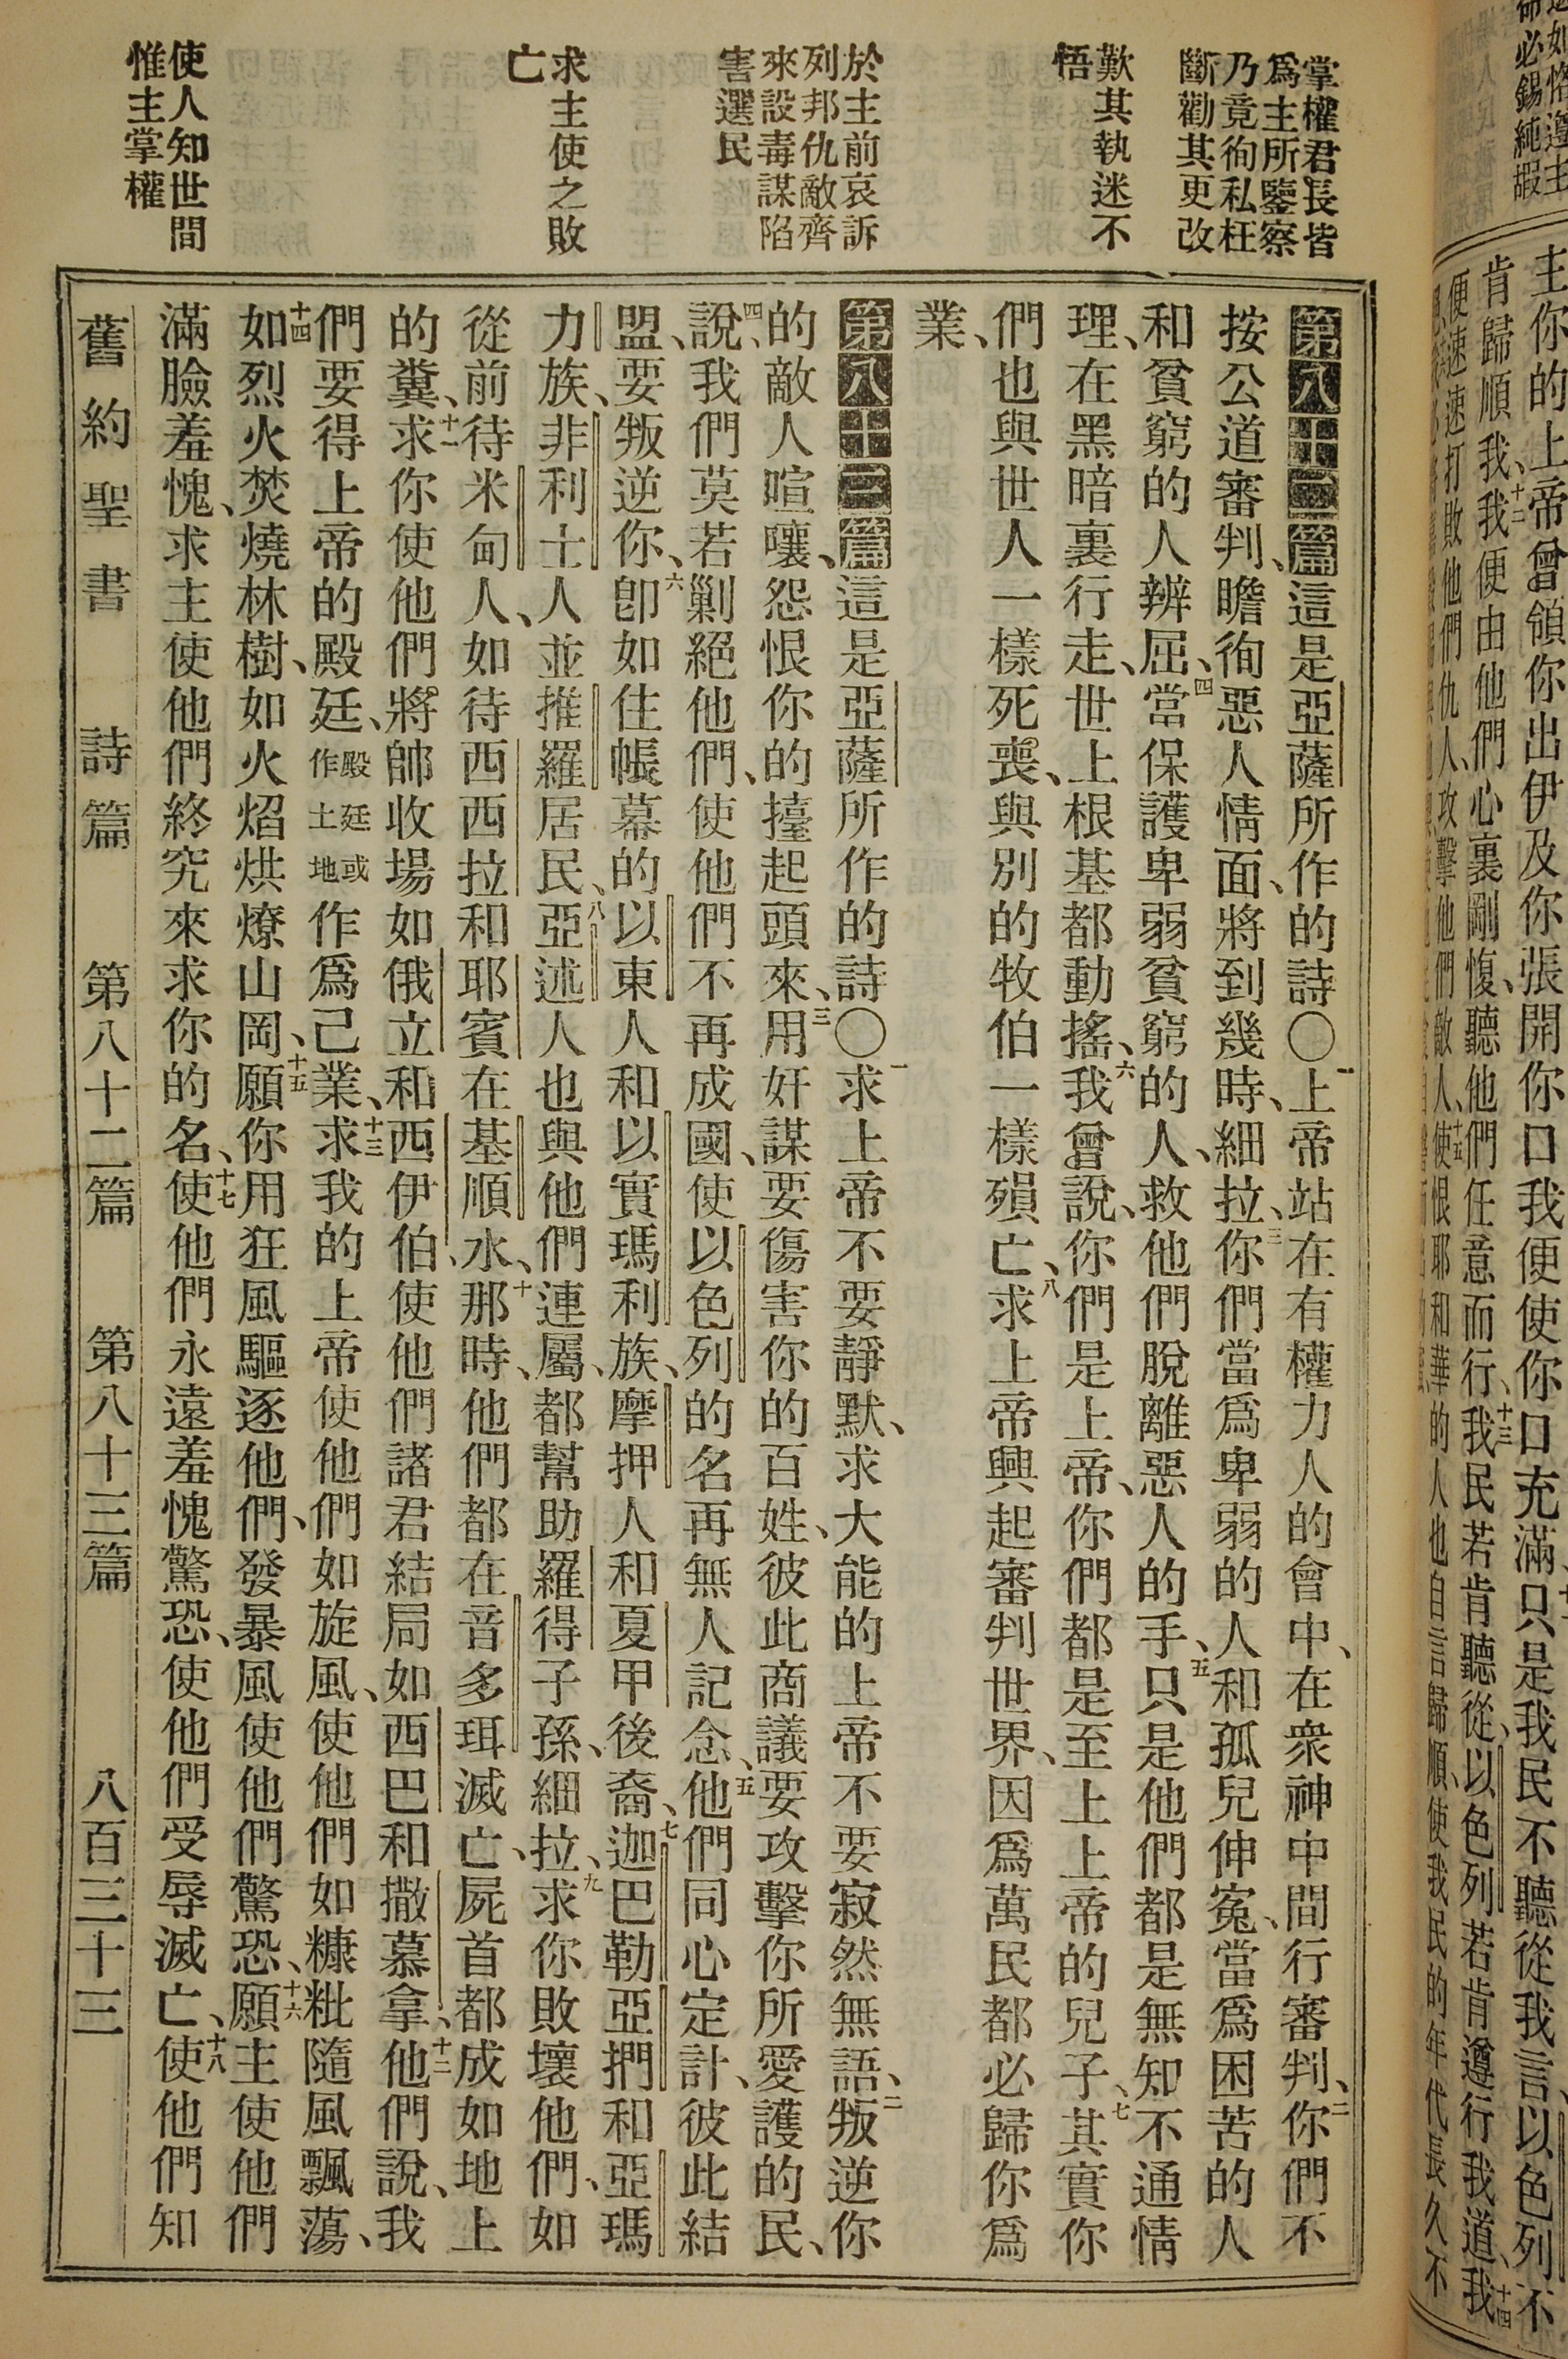 掌權君長皆
爲主所鑒察
乃竟徇私枉
斷勸其更改
歎其執迷不
悟
於主前哀訴
列邦仇敵齊
來設毒謀陷
害選民
求主使之敗
亡
使人知世間
惟主掌權
主你的上帝曾領你出伊及你張開你口我便使你口充滿、十一只是我民不聽從我言、以色列不
肯歸順我、十二我便由他們心裏剛愎、聽他們任意而行、十三我民若肯聽從、以色列若肯遵行我道、十四我
便速速打敗他們仇人、攻擊他們敵人、十五使恨耶和華的人也自言歸順、使我民的年代長久不
第八十二篇這是亞薩所作的詩〇一上帝站在有權力人的會中、在衆神中間行審判、二你們不
按公道審判、瞻徇惡人情面、將到幾時、細拉、三你們當爲卑弱的人和孤兒伸寃、當爲困苦的人
和貧窮的人辨屈、四當保護卑弱貧窮的人、救他們脫離惡人的手、五只是他們都是無知不通情
理、在黑暗裏行走、世上根基都動搖、六我曾說、你們是上帝、你們都是至上上帝的兒子、七其實你
們也與世人一樣死喪、與別的牧伯一樣殞亡、八求上帝興起審判世界、因爲萬民都必歸你爲
業、
第八十三篇這是亞薩所作的詩〇一求上帝不要靜默、求大能的上帝不要寂然無語、二叛逆你
的敵人喧嚷、怨恨你的擡起頭來、三用奸謀要傷害你的百姓、彼此商議要攻擊你所愛護的民、
四說、我們莫若剿絕他們、使他們不再成國、使以色列的名再無人記念、五他們同心定計、彼此結
盟、要叛逆你、六卽如住帳幕的以東人和以實瑪利族、摩押人和夏甲後裔、七迦巴勒亞捫和亞瑪
力族、非利士人並推羅居民、八亞述人也與他們連屬、都幫助羅得子孫、細拉、九求你敗壞他們、如
從前待米甸人、如待西西拉和耶賓在基順水、十那時、他們都在音多珥滅亡、屍首都成如地上
的糞、十一求你使他們將帥收場如俄立和西伊伯、使他們諸君結局如西巴和撒慕拿、十二他們說、我
們要得上帝的殿廷、殿廷或作土地作爲己業、十三求我的上帝使他們如旋風、使他們如糠粃隨風飄蕩、
十四如烈火焚燒林樹、如火焰烘燎山岡、十五願你用狂風驅逐他們、發暴風使他們驚恐、十六願主使他們
滿臉羞愧、求主使他們終究來求你的名、十七使他們永遠羞愧驚恐、使他們受辱滅亡、十八使他們知
舊約聖書　詩篇　第八十二篇　第八十三篇　八百三十三